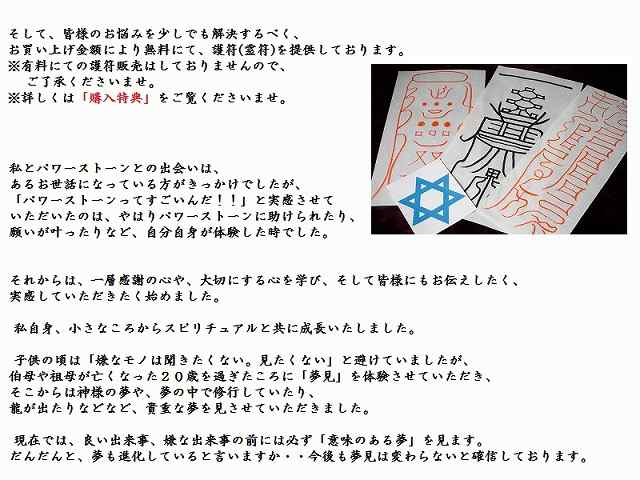 そして、皆様のお悩みを少しでも解決するべく、
お買い上げ金額により無料にて、護符(霊符)を提供しております。
※有料にての護符販売はしておりませんので、
ご了承くださいませ。
※詳しくは「購入特典」をご覧くださいませ。
私とパワーストーンとの出会いは、
あるお世話になっている方がきっかけでしたが、
「パワーストーンってすごいんだ！！」と実感させて
いただいたのは、やはりパワーストーンに助けられたり、
願いが叶ったりなど、自分自身が体験した時でした。
それからは、一層感謝の心や、大切にする心を学び、そして皆様にもお伝えしたく、
実感していただきたく始めました。
私自身、小さなころからスピリチュアルと共に成長いたしました。
子供の頃は「嫌なモノは聞きたくない。見たくない」と避けていましたが、
伯母や祖母が亡くなった２０歳を過ぎたころに「夢見」を体験させていただき、
そこからは神様の夢や、夢の中で修行していたり、
龍が出たりなどなど、貴重な夢を見させていただきました。
現在では、良い出来事、嫌な出来事の前には必ず「意味のある夢」を見ます。
だんだんと、夢も進化していると言いますか・・今後も夢見は変わらないと確信しております。